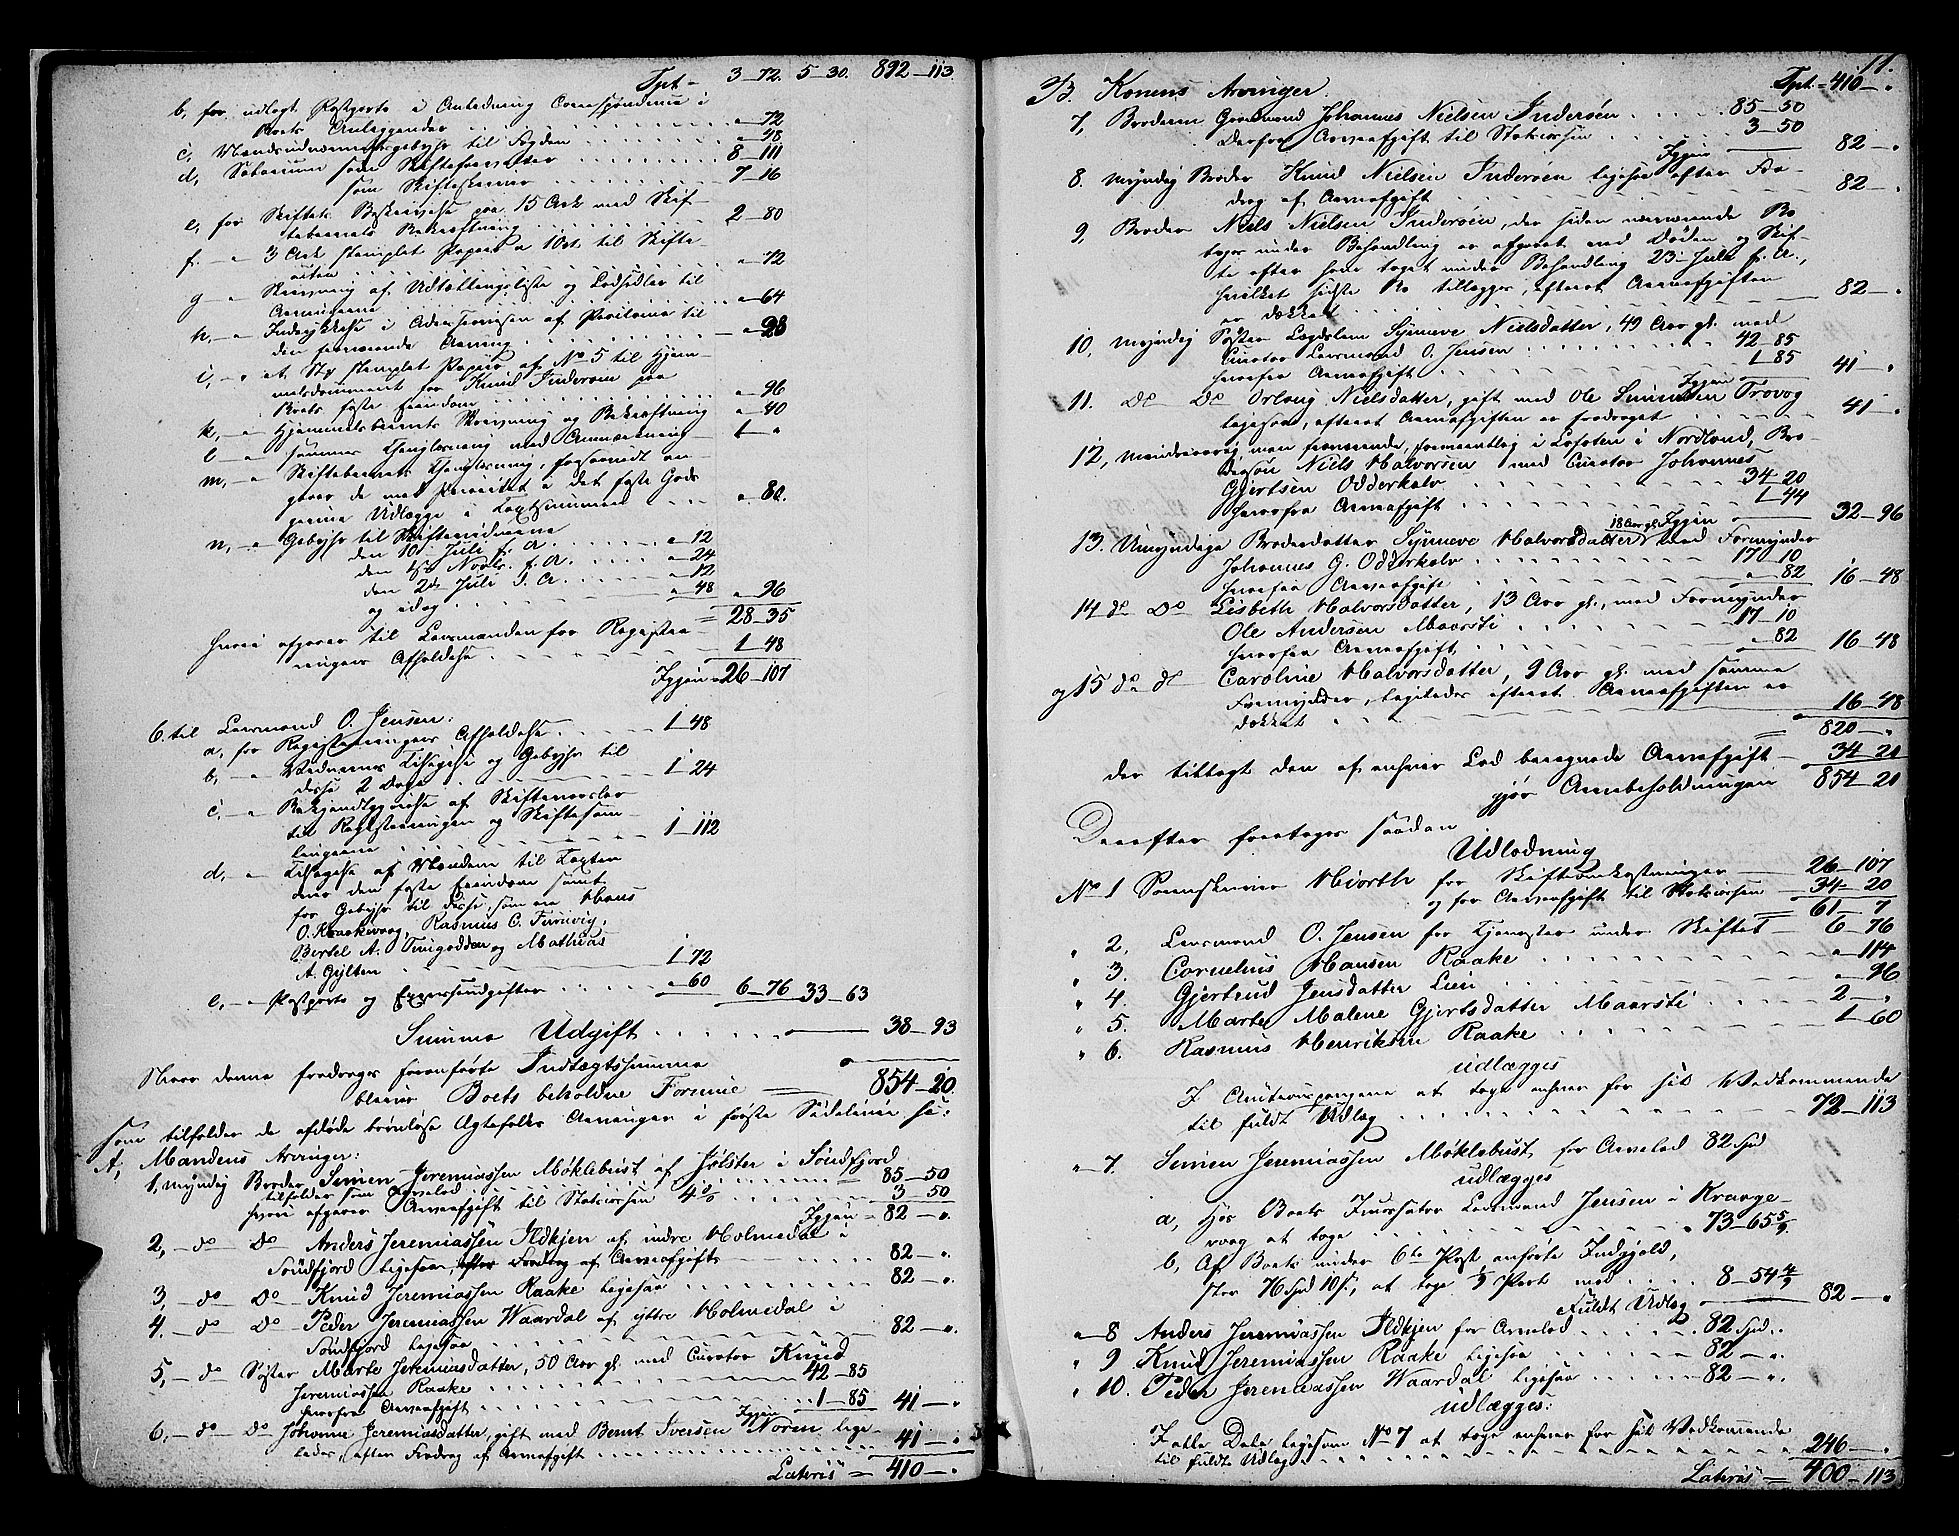 Tpt - 3_72. 5_30. 892_113.
b, for udlagt Postporto i Anledning Correspondence i
Boets Anliggender . . . „_72
c, Mændsudnævnelsesgebyhr til Fogden . . . „_48
d, Salarium som Skifteforvalter . . . 8_111
som Skifteskriver . . . 7_16
e, for Skiftets Beskrivelse paa 15 Ark med Skif-
tebrevets Bekræftning . . . 2_80
f. -„- 3 Ark stemplet Papiir a 10s. til Skifte-
acten . . . „_72
g -„- Skrivning af Udlodningsliste og Lodsedler til
Arvingerne . . . „_64
h, -„- Indrykkelse i Adresseavisen af Proclama til
den fraværende Arving . . . „_28
i, -„- et St. stemplet Papiir af No 5 til Hjem-
melsdocument for Knud Indersøen paa
Boets faste Eiendom . . . „_96
k, -„- Hjemmelsbrevets Skrivning og Bekræftning „_40
l -„- sammes Thinglæsning med Anmærkning 1_„
m, -„- Skiftebrevets Thinglæsning, forsaavidt an-
gaaer de med Prioritet i det faste Gods
givne Udlægge i Taxtsummen . . . „_80.
n, -„- Gebyhr til Skiftevidnerne
den 10. Juli f. A. . . . „_12
den Novbr. f. A. . . . „_24
den 2d Juli d. A. . . . „_12
og idag . . . „_48 „_96
= 28_35
hvori afgaaer til Lensmanden for Registre-
ringens Afholdelse . . . 1_48
Igjen = 26_107
6. til Lensmand O. Jensen:
a, for Registreringens Afholdelse . . . 1_48
b, -„- Vidnernes Tilsigelse og Gebyhr til
disse 2 Dage . . . 1_24
c, -„- Bekjendtgjørelse af Skiftevarsler
til Registreringen og Skiftesam-
lingerne . . . 1_112
d, -„- Tilsigelse af Mændene til Taxten
over den faste Eiendom samt
for Gebyhr til disse, som ere Hans
O. Kraakevaag, Rasmus C. Furevig,
Bertel A. Tungodden og Mathias
A. Gylten . . . 1_72
e, -„- Postporto og Expressudgifter . . . „_60 6_76 33_63
Summa Udgift . . . 38_93
Naar denne fradrages foranførte Indtægtssumma
bliver Boets beholdne Formue = 854_20.
som tilfalder de afdøde barnløse Ægtefolks Arvinger i første Sidelinie saa:
A, Mandens Arvinger:
1, myndig Broder Simen Jeremiassen Møklebust af Jølster i Søndfjord
tilfalder som Arvelod . . . 85_50
hvori afgaaer Arveafgift til Statscassen 4% . . . 3_50
Igjen = 82_„
2, -do- Do- Anders Jeremiassen Ildkjen af indre Holmedal i
Søndfjord ligesaa, efter Fradrag af Arveafgift . . . 82_„
3, -do- Do- Knud Jeremiassen Raake ligesaa . . . 82_„
4. -do- Do- Peder Jeremiassen Waardal af ytre Holmedal i
Søndfjord ligesaa . . . 82_„
5, -do- Søster Marte Jeremiasdatter, 50 Aar gl. med Curator Knud
Jeremiassen Raake . . . 42_85
hvorfra Arveafgift . . . 1_85 41_„
Igjen
6, -do- Do- Johanne Jeremiasdatter, gift med Bernt Iversen Noren, lige-
ledes, efter Fradrag af Arveafgift . . . 41_„
Lateris = 410_„
11.
B. Konens Arvinger. Tpt. = 410_„
7, Broderen Gaardmand Johannes Nielsen Indersøen . . . 85_50
Derfra Arveafgift til Statscassen . . . 3_50
Igjen 82_„
8. myndig Broder Knud Nielsen Indersøen ligesaa efter Fra-
drag af Arveafgift . . . 82_„
9, Broder Niels Nielsen Indersøen, der siden nærværende Bo
toges under Behandling er afgaaet ved Døden og Skif-
te efter ham taget under Behandling 23d Juli f. A.,
hvilket sidste Bo tillægges, efterat Arveafgiften
er dækket . . . 82_„
10, myndig Søster Lægdslem Synneve Nielsdatter, 49 Aar gl. med
Curator Lensmand O. Jensen . . . 42_85
hvorfra Arveafgift . . . 1_85 41_„
Igjen
11. Do Do Orlaug Nielsdatter, gift med Ole Simensen Trovog
ligesaa, efterat Arveafgiften er fradraget . . . 41_„
12, mindreaarig men fraværende, formeentlig i Lofoten i Nordland, Bro-
dersøn Niels Halvorsen med Curator Johannes
Gjertsen Odderkalv . . . 34_20
hvorfra Arveafgift . . . 1_44
Igjen 32_96
13. Umyndige Broderdatter Synneve Halvorsdatter 18 Aar gl. med Formynder
Johannes G. Odderkalv . . . 17_10
hvorfra Arveafgift . . . „_82 16_48
14 do Do Lisbeth Halvorsdatter, 13 Aar gl., med Formynder
Ole Andersen Maarsti . . . 17_10
hvorfra Arveafgift . . . „_82 16_48
og 15 do do Caroline Halvorsdatter, 9 Aar gl. med samme
Formynder, ligeledes efterat Arveafgiften er
dækket . . . 16_48
= 820_„
der tillagt den af enhver Lod beregnede Arveafgift - 34_20
gjør Arvebeholdningen 854_20
Derefter foretoges saadan
Udlodning
No 1 Sorenskriver Hiorth for Skifteomkostninger — 26_107
og for Arveafgift til Statscassen - 34_20
= 61_7
„ 2, Lensmand O. Jensen for Tjenester under Skiftet — 6_76
„ 3. Cornelius Hansen Raake . . . „_114
„ 4. Gjertrud Jensdatter Lien . . . „_96
„ 5. Marte Malene Gjertsdatter Maarsti . . . 2_„
„ 6. Rasmus Henriksen Raake . . . 1_60
udlægges
I Auctionspengene at tage enhver for sit Vedkommende
til fuldt Udlæg . . . 72_113
„ 7. Simen Jeremiassen Møklebust for Arvelod 82 Spd
udlægges
a, Hos Boets Incassator Lensmand Jensen i Kraage-
vaag at tage . . . 73_65 5/9
b, Af Boets under 6te Post anførte Indgjæld,
stor 76 Spd 10 s, at tage 1/9 Part med . . . 8_54 4/9
Fuldt Udlæg — 82_„
„ 8 Anders Jeremiassen Ildkjen for Arvelod . . . 82 Spd „
„ 9 Knud Jeremiassen Raake ligesaa . . . 82_„
„ 10. Peder Jeremiassen Waardal ligesaa . . . 82_„
udlægges:
I alle Dele ligesom No 7 at tage enhver for sit Vedkommende
til fuldt Udlæg . . . 246_„
Lateris = 400_113